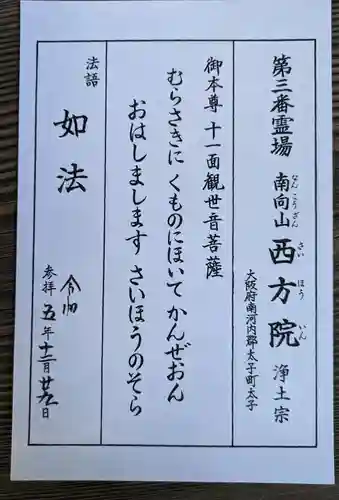 第三番霊場 南向山 西方院 浄土宗
なんこうざん さいほういん
大阪府南河内郡太子町太子
御本尊 十一面観世音菩薩
むらさきに くものにほいて かんぜおん
おはしまします さいほうのそら
法語
如法
参拝 令和五年十二月廿九日